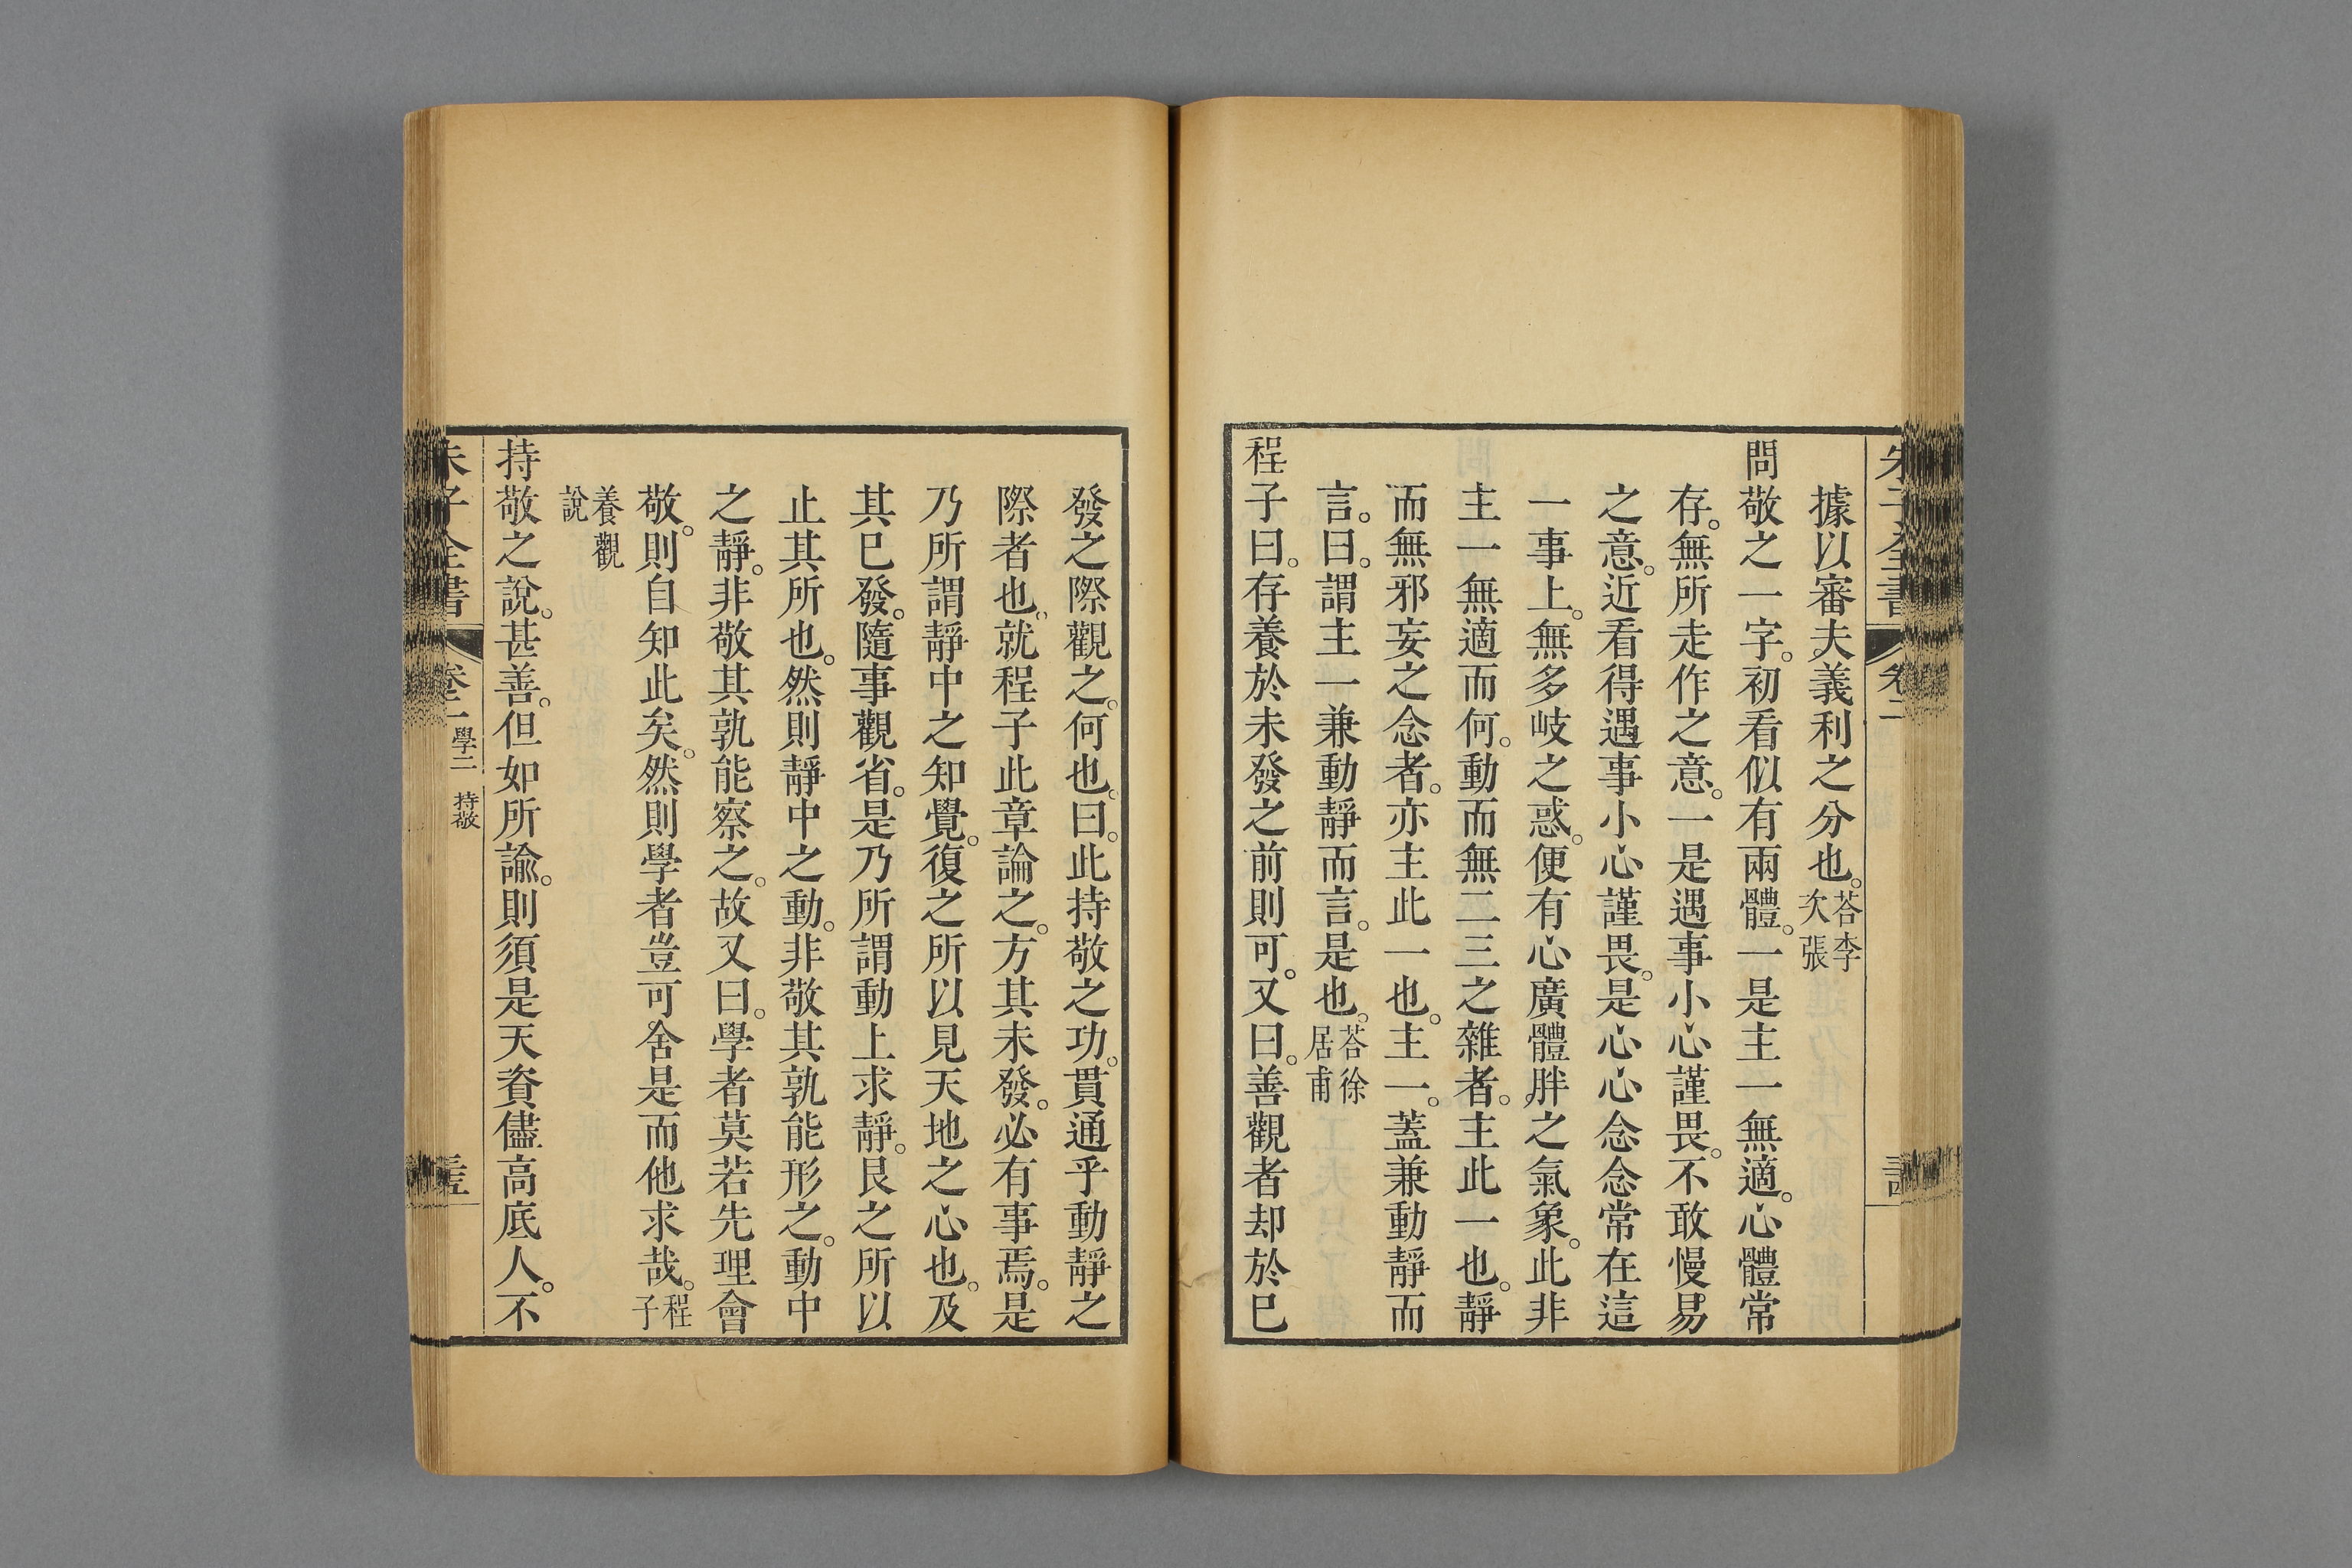 朱子全書 卷二
據以審夫義利之分也。荅李次張
問敬之一字。初看似有兩體。一是主一無適。心體常
存。無所走作之意。一是遇事小心謹畏。不敢慢易
之意。近看得遇事小心謹畏。是心心念念常在這
一事上。無多岐之惑。便有心廣體胖之氣象。此非
主一無適而何。動而無二三之雜者。主此一也。靜
而無邪妄之念者。亦主此一也。主一。蓋兼動靜而
言。曰。謂主一兼動靜而言。是也。荅徐居甫
程子曰。存養於未發之前則可。又曰。善觀者却於已
發之際觀之。何也。曰。此持敬之功。貫通乎動靜之
際者也。就程子此章論之。方其未發。必有事焉。是
乃所謂靜中之知覺。復之所以見天地之心也。及
其已發。隨事觀省。是乃所謂動上求靜。艮之所以
止其所也。然則靜中之動。非敬其孰能形之。動中
之靜。非敬其孰能察之。故又曰。學者莫若先理會
敬。則自知此矣。然則學者豈可舍是而他求哉。程子
養觀說
持敬之說。甚善。但如所諭。則須是天資儘高底人。不
朱子全書 卷二 學二 持敬